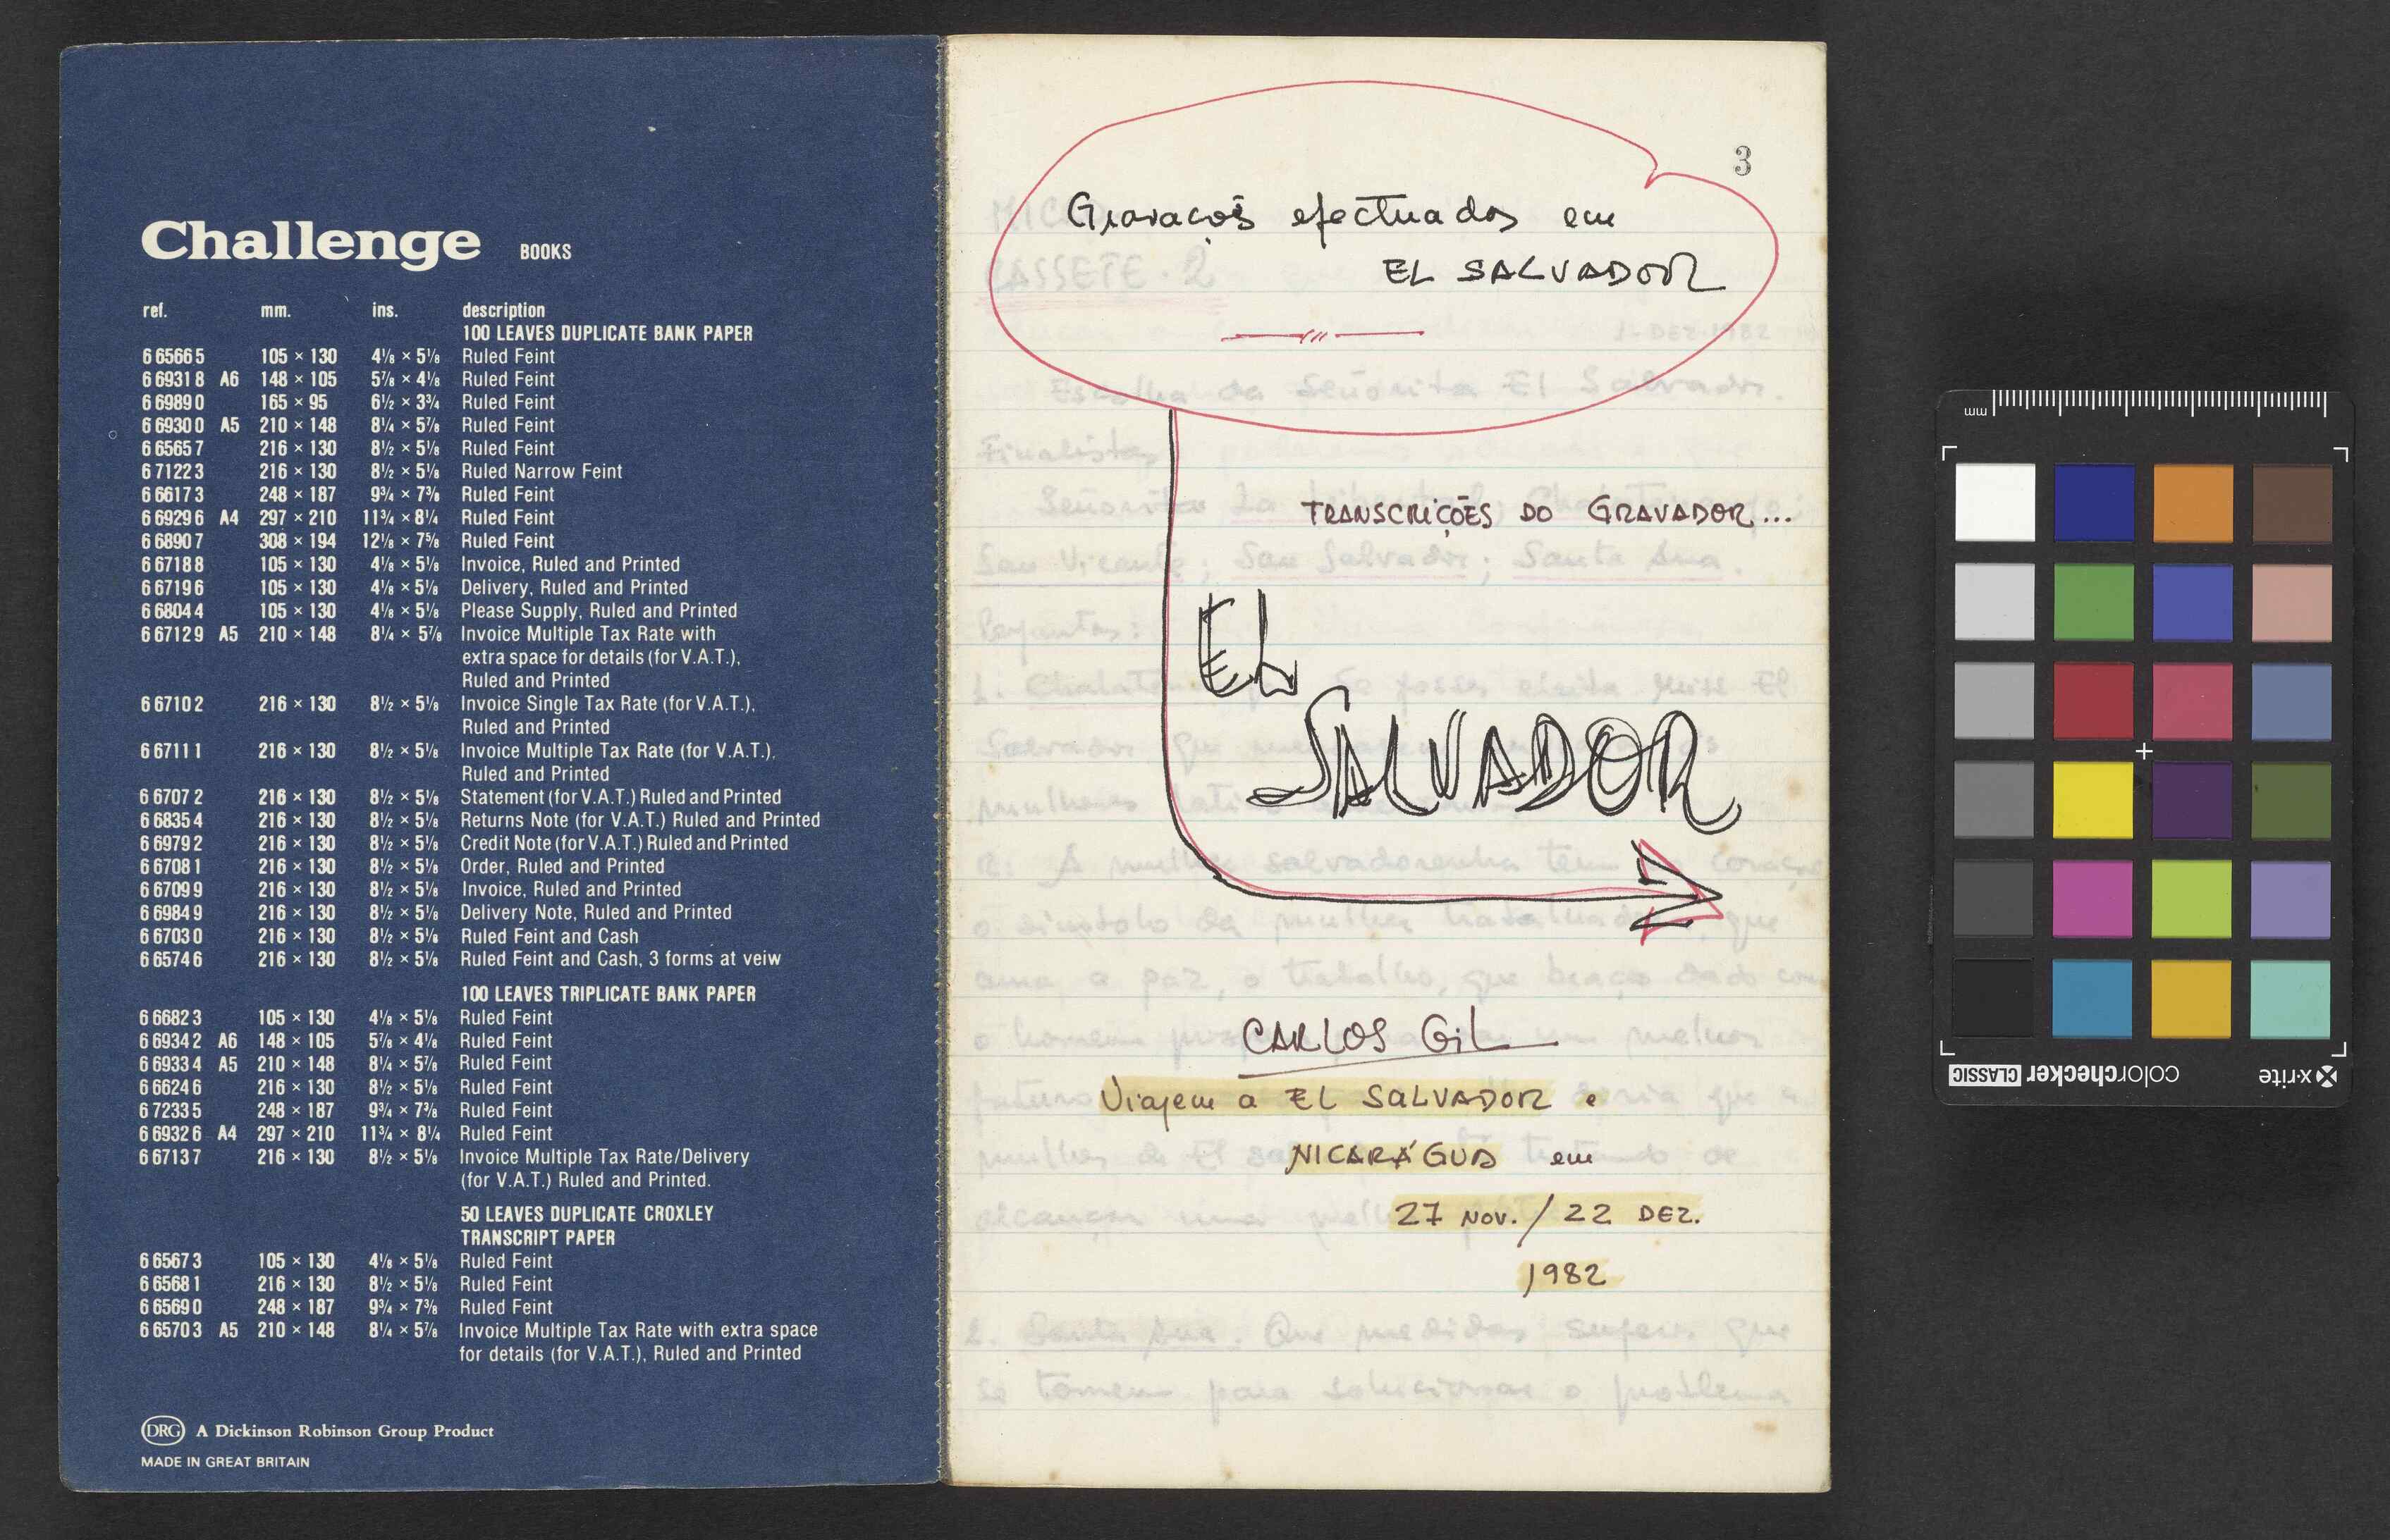 Challenge BOOKS
ref. mm. ins. description
100 LEAVES DUPLICATE BANK PAPER
665665 105 × 130 4⅛ × 5⅛ Ruled Feint
669318 A6 148 × 105 5⅞ × 4⅛ Ruled Feint
669890 165 × 95 6½ × 3¾ Ruled Feint
669300 A5 210 × 148 8¼ × 5⅞ Ruled Feint
665657 216 × 130 8½ × 5⅛ Ruled Feint
671223 216 × 130 8½ × 5⅛ Ruled Narrow Feint
666173 248 × 187 9¾ × 7⅜ Ruled Feint
669296 A4 297 × 210 11¾ × 8¼ Ruled Feint
668907 308 × 194 12⅛ × 7⅝ Ruled Feint
667188 105 × 130 4⅛ × 5⅛ Invoice, Ruled and Printed
667196 105 × 130 4⅛ × 5⅛ Delivery, Ruled and Printed
668044 105 × 130 4⅛ × 5⅛ Please Supply, Ruled and Printed
667129 A5 210 × 148 8¼ × 5⅞ Invoice Multiple Tax Rate with
extra space for details (for V.A.T.),
Ruled and Printed
667102 216 × 130 8½ × 5⅛ Invoice Single Tax Rate (for V.A.T.),
Ruled and Printed
667111 216 × 130 8½ × 5⅛ Invoice Multiple Tax Rate (for V.A.T.),
Ruled and Printed
667072 216 × 130 8½ × 5⅛ Statement (for V.A.T.) Ruled and Printed
668354 216 × 130 8½ × 5⅛ Returns Note (for V.A.T.) Ruled and Printed
669792 216 × 130 8½ × 5⅛ Credit Note (for V.A.T.) Ruled and Printed
667081 216 × 130 8½ × 5⅛ Order, Ruled and Printed
667099 216 × 130 8½ × 5⅛ Invoice, Ruled and Printed
669849 216 × 130 8½ × 5⅛ Delivery Note, Ruled and Printed
667030 216 × 130 8½ × 5⅛ Ruled Feint and Cash
665746 216 × 130 8½ × 5⅛ Ruled Feint and Cash, 3 forms at veiw
100 LEAVES TRIPLICATE BANK PAPER
666823 105 × 130 4⅛ × 5⅛ Ruled Feint
669342 A6 148 × 105 5⅞ × 4⅛ Ruled Feint
669334 A5 210 × 148 8¼ × 5⅞ Ruled Feint
666246 216 × 130 8½ × 5⅛ Ruled Feint
672335 248 × 187 9¾ × 7⅜ Ruled Feint
669326 A4 297 × 210 11¾ × 8¼ Ruled Feint
667137 216 × 130 8½ × 5⅛ Invoice Multiple Tax Rate/Delivery
(for V.A.T.) Ruled and Printed.
50 LEAVES DUPLICATE CROXLEY
TRANSCRIPT PAPER
665673 105 × 130 4⅛ × 5⅛ Ruled Feint
665681 216 × 130 8½ × 5⅛ Ruled Feint
665690 248 × 187 9¾ × 7⅜ Ruled Feint
665703 A5 210 × 148 8¼ × 5⅞ Invoice Multiple Tax Rate with extra space
for details (for V.A.T.), Ruled and Printed
DRG A Dickinson Robinson Group Product
MADE IN GREAT BRITAIN
3
Gravaçoẽs efectuados em
EL SALVADOR
TRANSCRIÇÕES DO GRAVADOR...
EL
SALVADOR
CARLOS GiL
Viagem a EL SALVADOR e
NICARÁGUA em
27 NOV. / 22 DEZ.
1982
mm
x-rite colorchecker CLASSIC